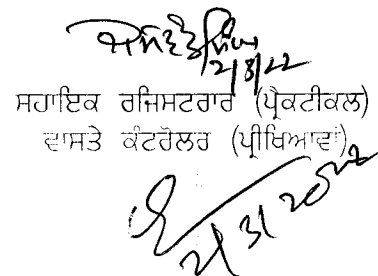 2/3/22
ਸਹਾਇਕ ਰਜਿਸਟਰਾਰ (ਪ੍ਰੈਕਟੀਕਲ)
ਵਾਸਤੇ ਕੰਟਰੋਲਰ (ਪ੍ਰੀਖਿਆਵਾਂ)
2/3/2022